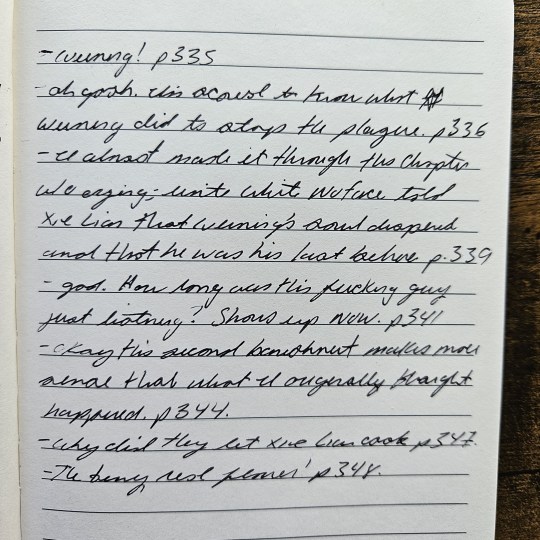 - Wuming! p335
- oh gosh. its scarest to know what
Wuming did to stops the plague. p336
- I almost made it through this Chapter
w/o crying; until whit Noface told
Xie Lian that Wuming's soul dispered
and that he was his last believe p.339
- god. How long was this fucking guy
just listning? Shows up now. p341
- okay this second banishment makes more
sense that what I origenally thought
happened. p344.
- why did they let Xie Lian cook p347.
- The tiny red flower! p348.